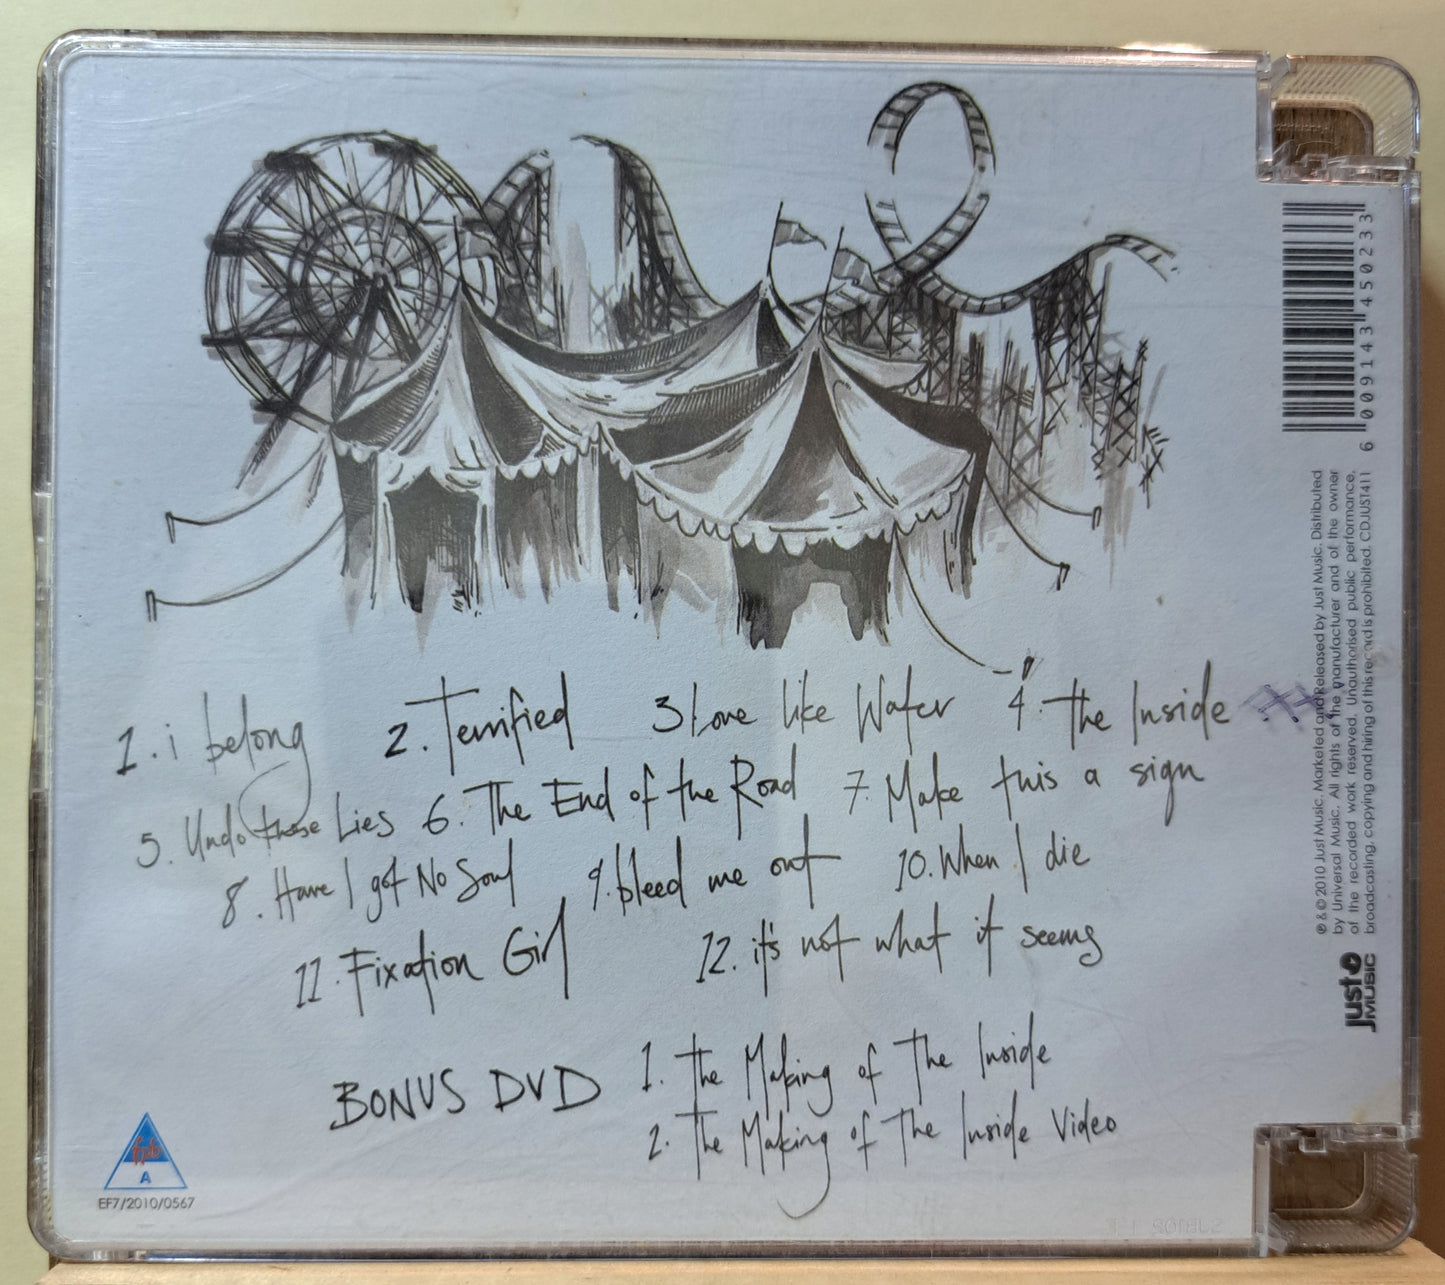 1. i belong 2. Terrified 3 Love like Water 4. The Inside
5. Undo these Lies 6. The End of the Road 7. Make this a sign
8. Have I got No Soul 9. bleed me out 10. When I die
11. Fixation Girl 12. it's not what it seems
BONUS DVD 1. The Making of The Inside
2. The Making of The Inside Video
fpb
A
EF7/2010/0567
6 009143 450233
℗ & © 2010 Just Music. Marketed and Released by Just Music. Distributed
by Universal Music. All rights of the manufacturer and of the owner
of the recorded work reserved. Unauthorised public performance,
broadcasting, copying and hiring of this record is prohibited. CDJUST411
Just
MUSIC